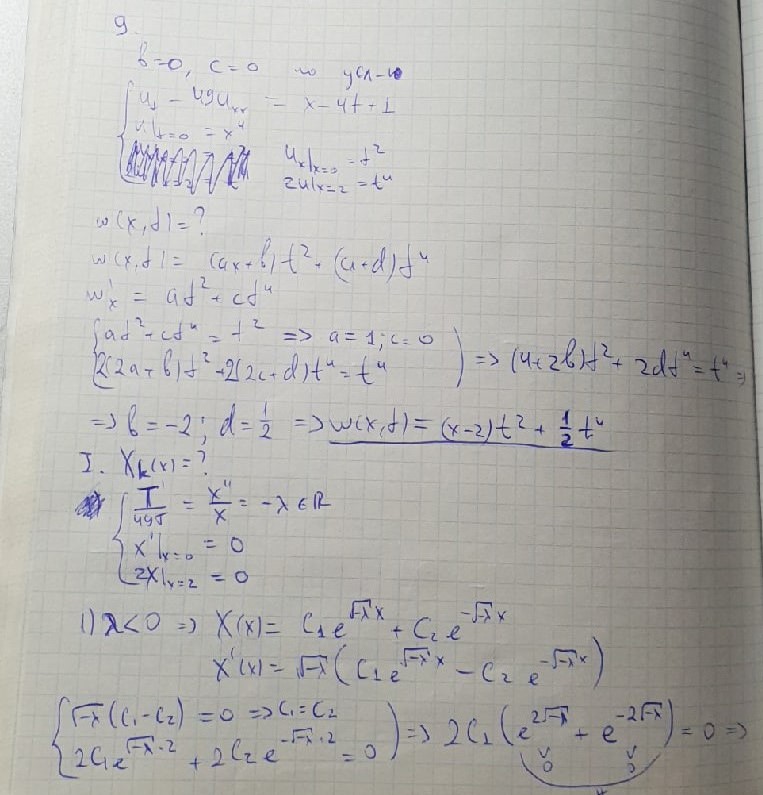 9
b=0, c=0 по усл-ю
{ u_t - 49u_xx = x-4t+1
u|_{t=0} = x^4
u_x|_{x=0} = t^2
2u|_{x=2} = t^4
w(x,t)=?
w(x,t) = (ax+b)t^2 + (a+d)t^4
w'_x = at^2 + ct^4
{ at^2+ct^4 = t^2 => a=1; c=0
2(2a+b)t^2+2(2c+d)t^4=t^4 ) => (4+2b)t^2+ 2dt^4=t^4 =>
=> b=-2; d=1/2 => w(x,t) = (x-2)t^2 + 1/2 t^4
I. X_k(x)=?
{ T'/49T = X''/X = -λ ∈ R
X'|_{x=0} = 0
2X|_{x=2} = 0
1) λ<0 => X(x) = C_1 e^{√-λ x} + C_2 e^{-√-λ x}
X'(x) = √-λ ( C_1 e^{√-λ x} - C_2 e^{-√-λ x} )
{ √-λ (C_1-C_2) = 0 => C_1=C_2
2C_1 e^{√-λ·2} + 2C_2 e^{-√-λ·2} = 0 ) => 2C_1 ( e^{2√-λ} + e^{-2√-λ} ) = 0 =>
∨ ∨
0 0